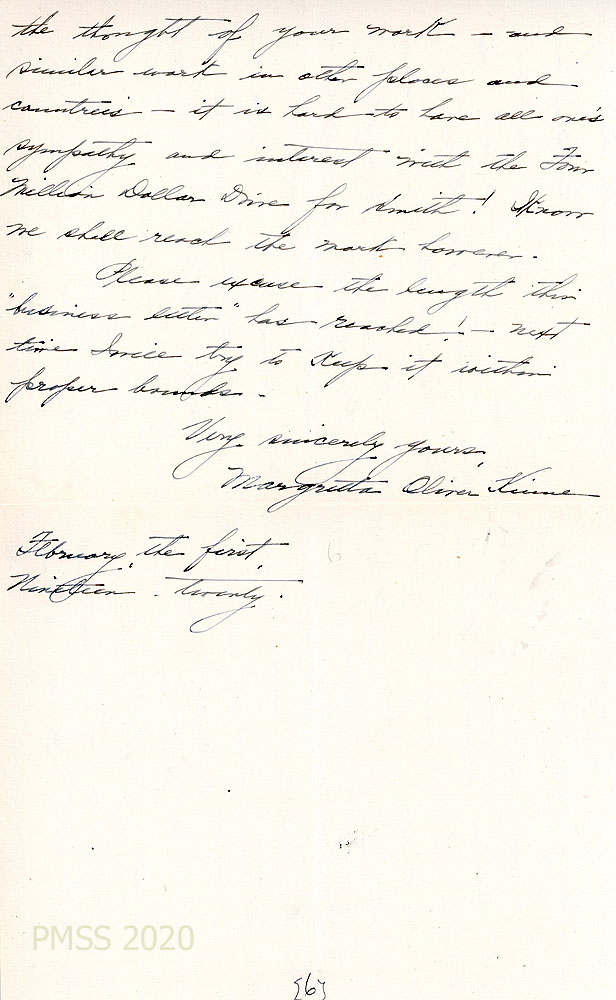 the thought of your work – and
similar work in other places and
countries – it is hard to have all one's
sympathy and interest with the Four
Million Dollar Drive for Smith! I know
we shall reach the mark however.
Please excuse the length this
"business letter" has reached! – next
time I will try to keep it within
proper bounds.
Very sincerely yours,
Margretta Oliver Kinne
February, the first,
Nineteen-twenty.
6
PMSS 2020
{6}